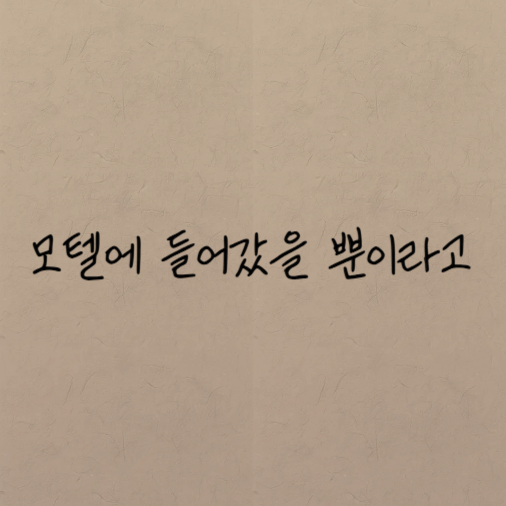 모텔에 들어갔을 뿐이라고